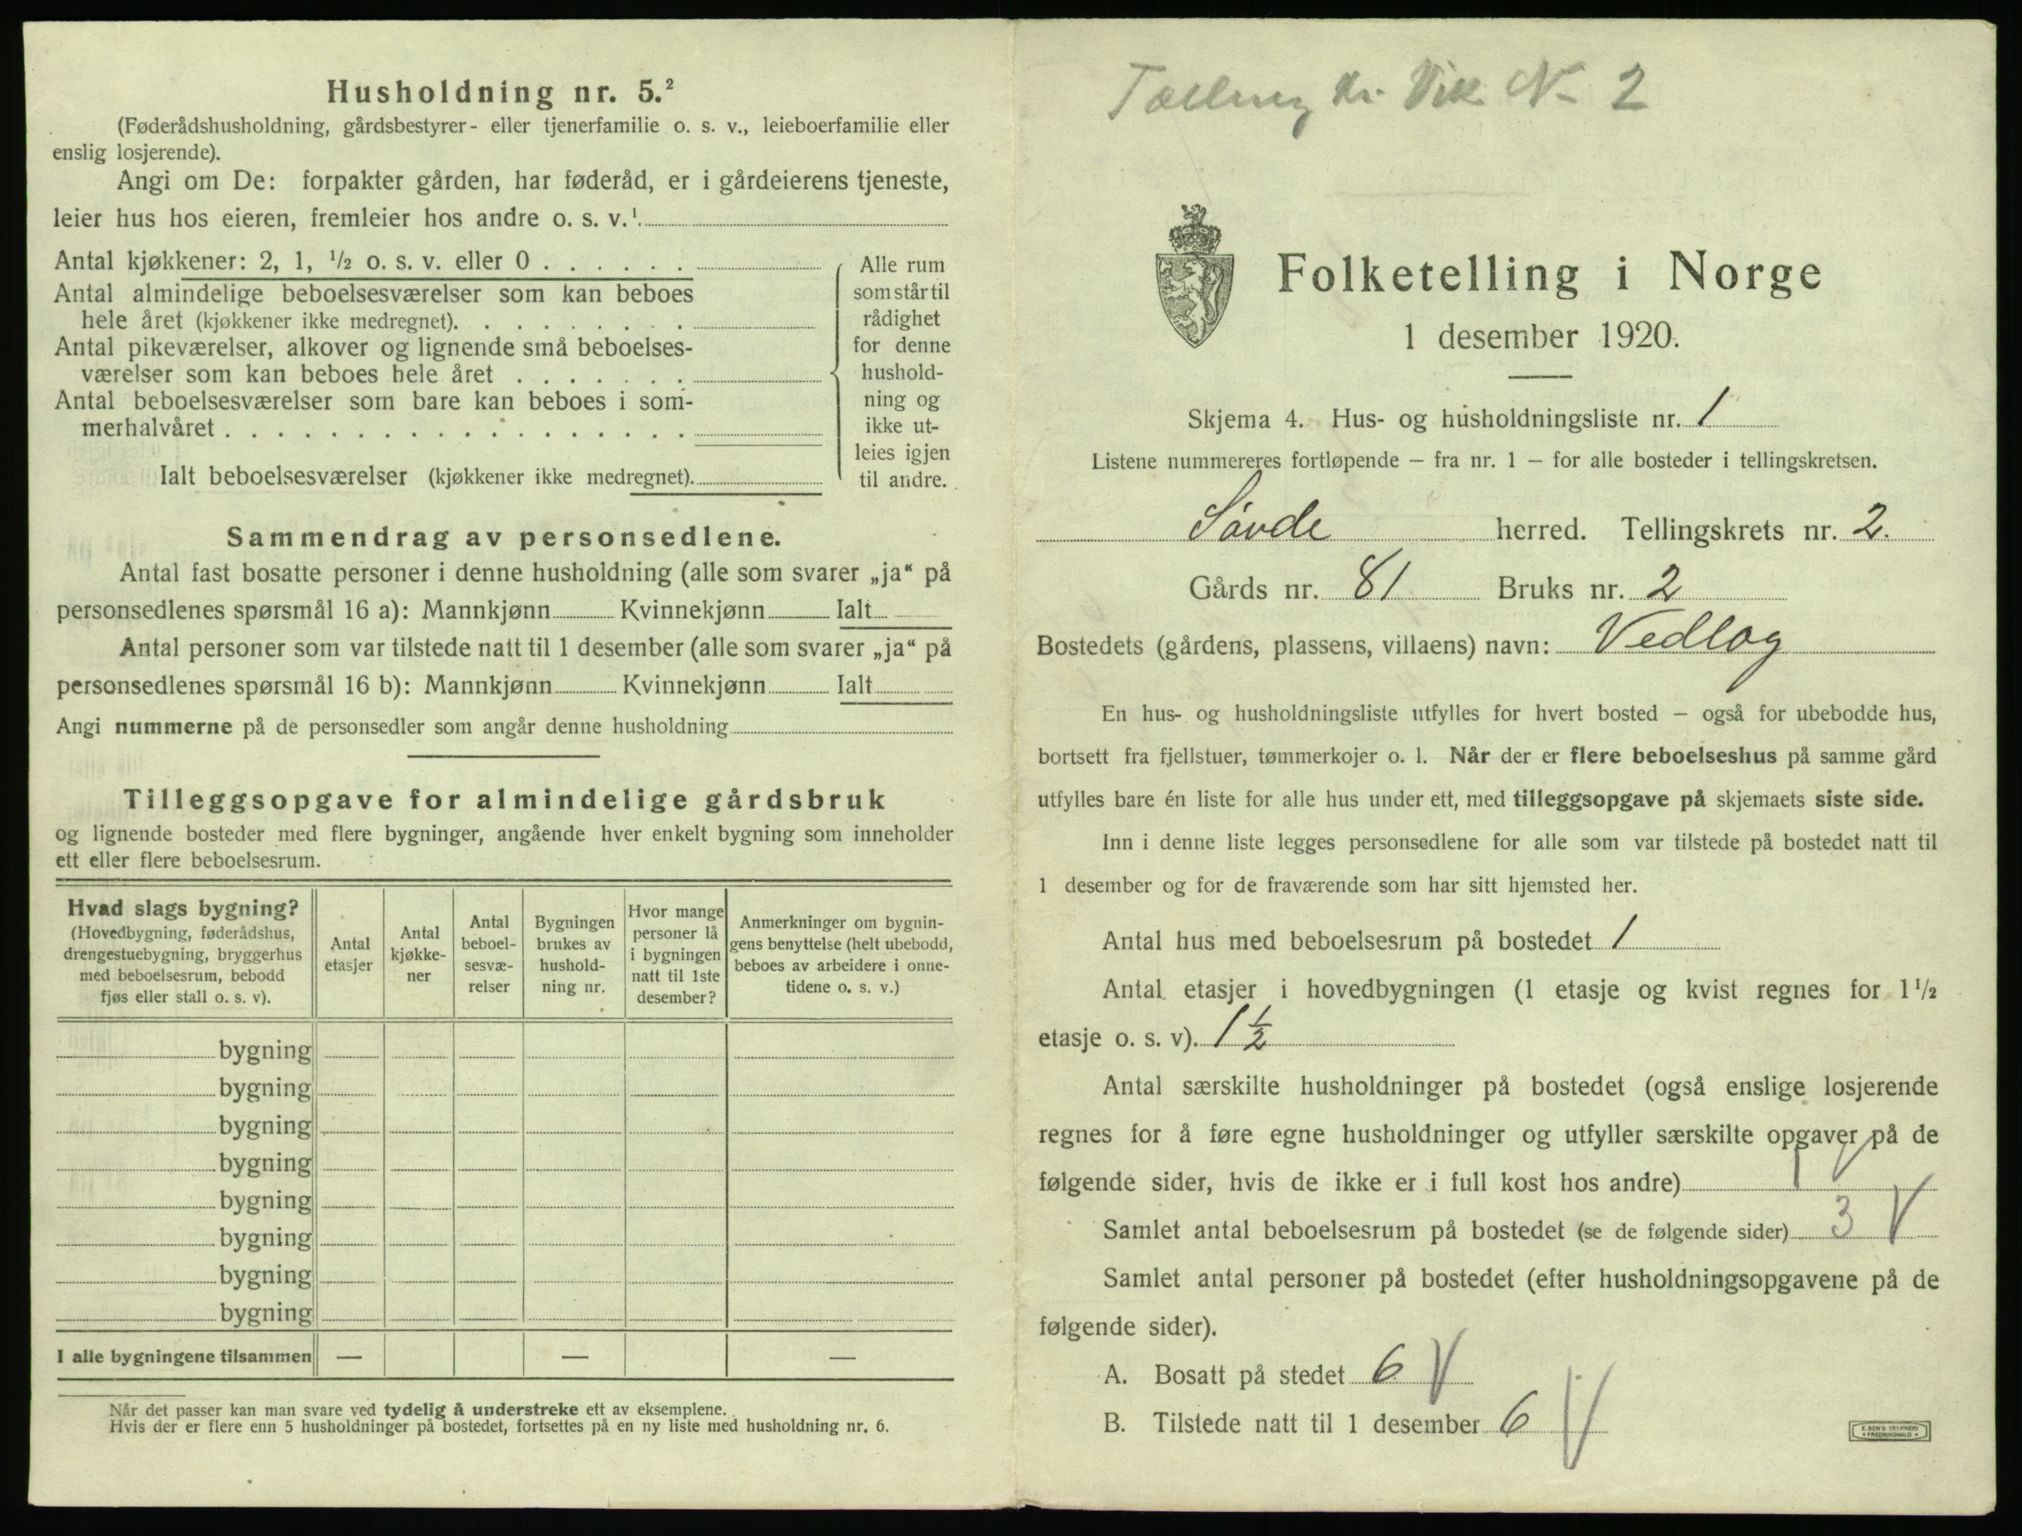 Husholdning nr. 5.²
(Føderådshusholdning, gårdsbestyrer- eller tjenerfamilie o. s. v., leieboerfamilie eller
enslig losjerende).
Angi om De: forpakter gården, har føderåd, er i gårdeierens tjeneste,
leier hus hos eieren, fremleier hos andre o. s. v.¹
Antal kjøkkener: 2, 1, ½ o. s. v. eller 0
Antal almindelige beboelsesværelser som kan beboes
hele året (kjøkkener ikke medregnet).
Antal pikeværelser, alkover og lignende små beboelses-
værelser som kan beboes hele året
Antal beboelsesværelser som bare kan beboes i som-
merhalvåret
Ialt beboelsesværelser (kjøkkener ikke medregnet).
Alle rum
som står til
rådighet
for denne
hushold-
ning og
ikke ut-
leies igjen
til andre.
Sammendrag av personsedlene.
Antal fast bosatte personer i denne husholdning (alle som svarer „ja“ på
personsedlenes spørsmål 16 a): Mannkjønn Kvinnekjønn Ialt
Antal personer som var tilstede natt til 1 desember (alle som svarer „ja“ på
personsedlenes spørsmål 16 b): Mannkjønn Kvinnekjønn Ialt
Angi nummerne på de personsedler som angår denne husholdning
Tilleggsopgave for almindelige gårdsbruk
og lignende bosteder med flere bygninger, angående hver enkelt bygning som inneholder
ett eller flere beboelsesrum.
Hvad slags bygning?
(Hovedbygning, føderådshus,
drengestuebygning, bryggerhus
med beboelsesrum, bebodd
fjøs eller stall o. s. v).
Antal
etasjer
Antal
kjøkke-
ner
Antal
beboel-
sesvæ-
relser
Bygningen
brukes av
hushold-
ning nr.
Hvor mange
personer lå
i bygningen
natt til 1ste
desember?
Anmerkninger om bygnin-
gens benyttelse (helt ubebodd,
beboes av arbeidere i onne-
tidene o. s. v.)
bygning
bygning
bygning
bygning
bygning
bygning
bygning
bygning
I alle bygningene tilsammen — — —
Når det passer kan man svare ved tydelig å understreke ett av eksemplene.
Hvis der er flere enn 5 husholdninger på bostedet, fortsettes på en ny liste med husholdning nr. 6.
Tællings kr. Vik N- 2
Folketelling i Norge
1 desember 1920.
Skjema 4. Hus- og husholdningsliste nr. 1
Listene nummereres fortløpende – fra nr. 1 – for alle bosteder i tellingskretsen.
Søvde herred. Tellingskrets nr. 2.
Gårds nr. 81 Bruks nr. 2
Bostedets (gårdens, plassens, villaens) navn: Vedlog
En hus- og husholdningsliste utfylles for hvert bosted – også for ubebodde hus,
bortsett fra fjellstuer, tømmerkojer o. l. Når der er flere beboelseshus på samme gård
utfylles bare én liste for alle hus under ett, med tilleggsopgave på skjemaets siste side.
Inn i denne liste legges personsedlene for alle som var tilstede på bostedet natt til
1 desember og for de fraværende som har sitt hjemsted her.
Antal hus med beboelsesrum på bostedet 1
Antal etasjer i hovedbygningen (1 etasje og kvist regnes for 1½
etasje o. s. v). 1½
Antal særskilte husholdninger på bostedet (også enslige losjerende
regnes for å føre egne husholdninger og utfyller særskilte opgaver på de
følgende sider, hvis de ikke er i full kost hos andre) 1 V
Samlet antal beboelsesrum på bostedet (se de følgende sider) 3 V
Samlet antal personer på bostedet (efter husholdningsopgavene på de
følgende sider).
A. Bosatt på stedet 6 V
B. Tilstede natt til 1 desember 6 V